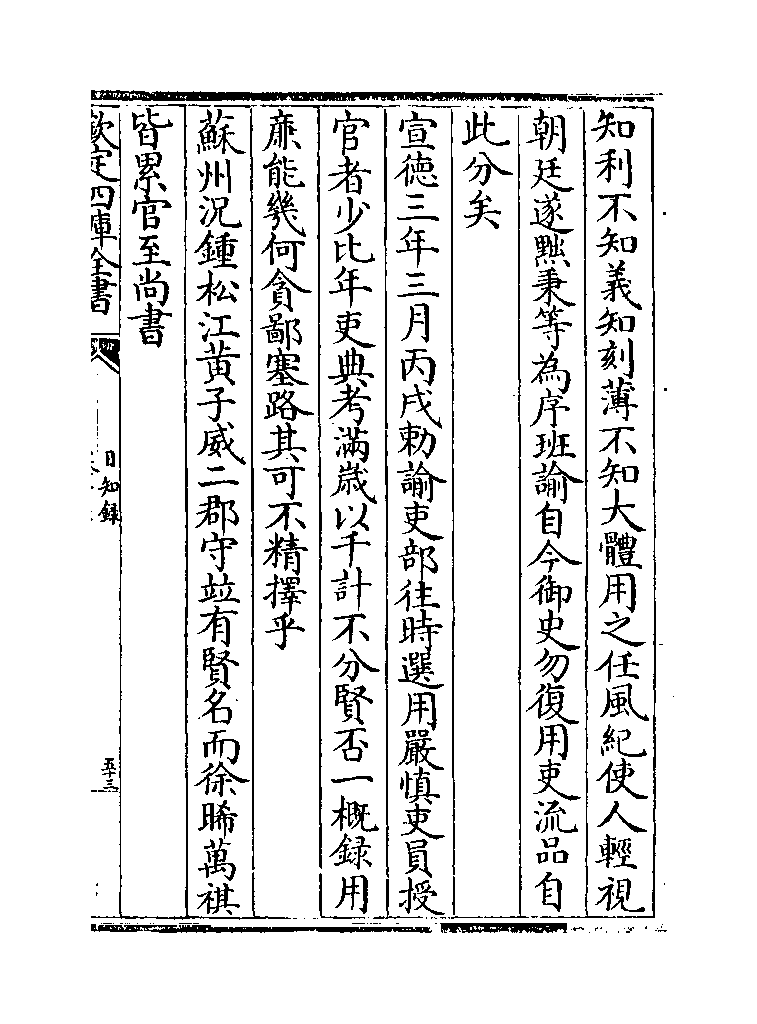 知利不知義知刻薄不知大體用之任風紀使人輕視
朝廷遂黜秉等為序班諭自今御史勿復用吏流品自
此分矣
宣德三年三月丙戌勅諭吏部往時選用嚴慎吏員授
官者少比年吏典考滿歲以千計不分賢否一概録用
亷能幾何貪鄙塞路其可不精擇乎
蘇州況鍾松江黄子威二郡守竝有賢名而徐晞萬祺
皆累官至尚書
欽定四庫全書
日知録
五十三